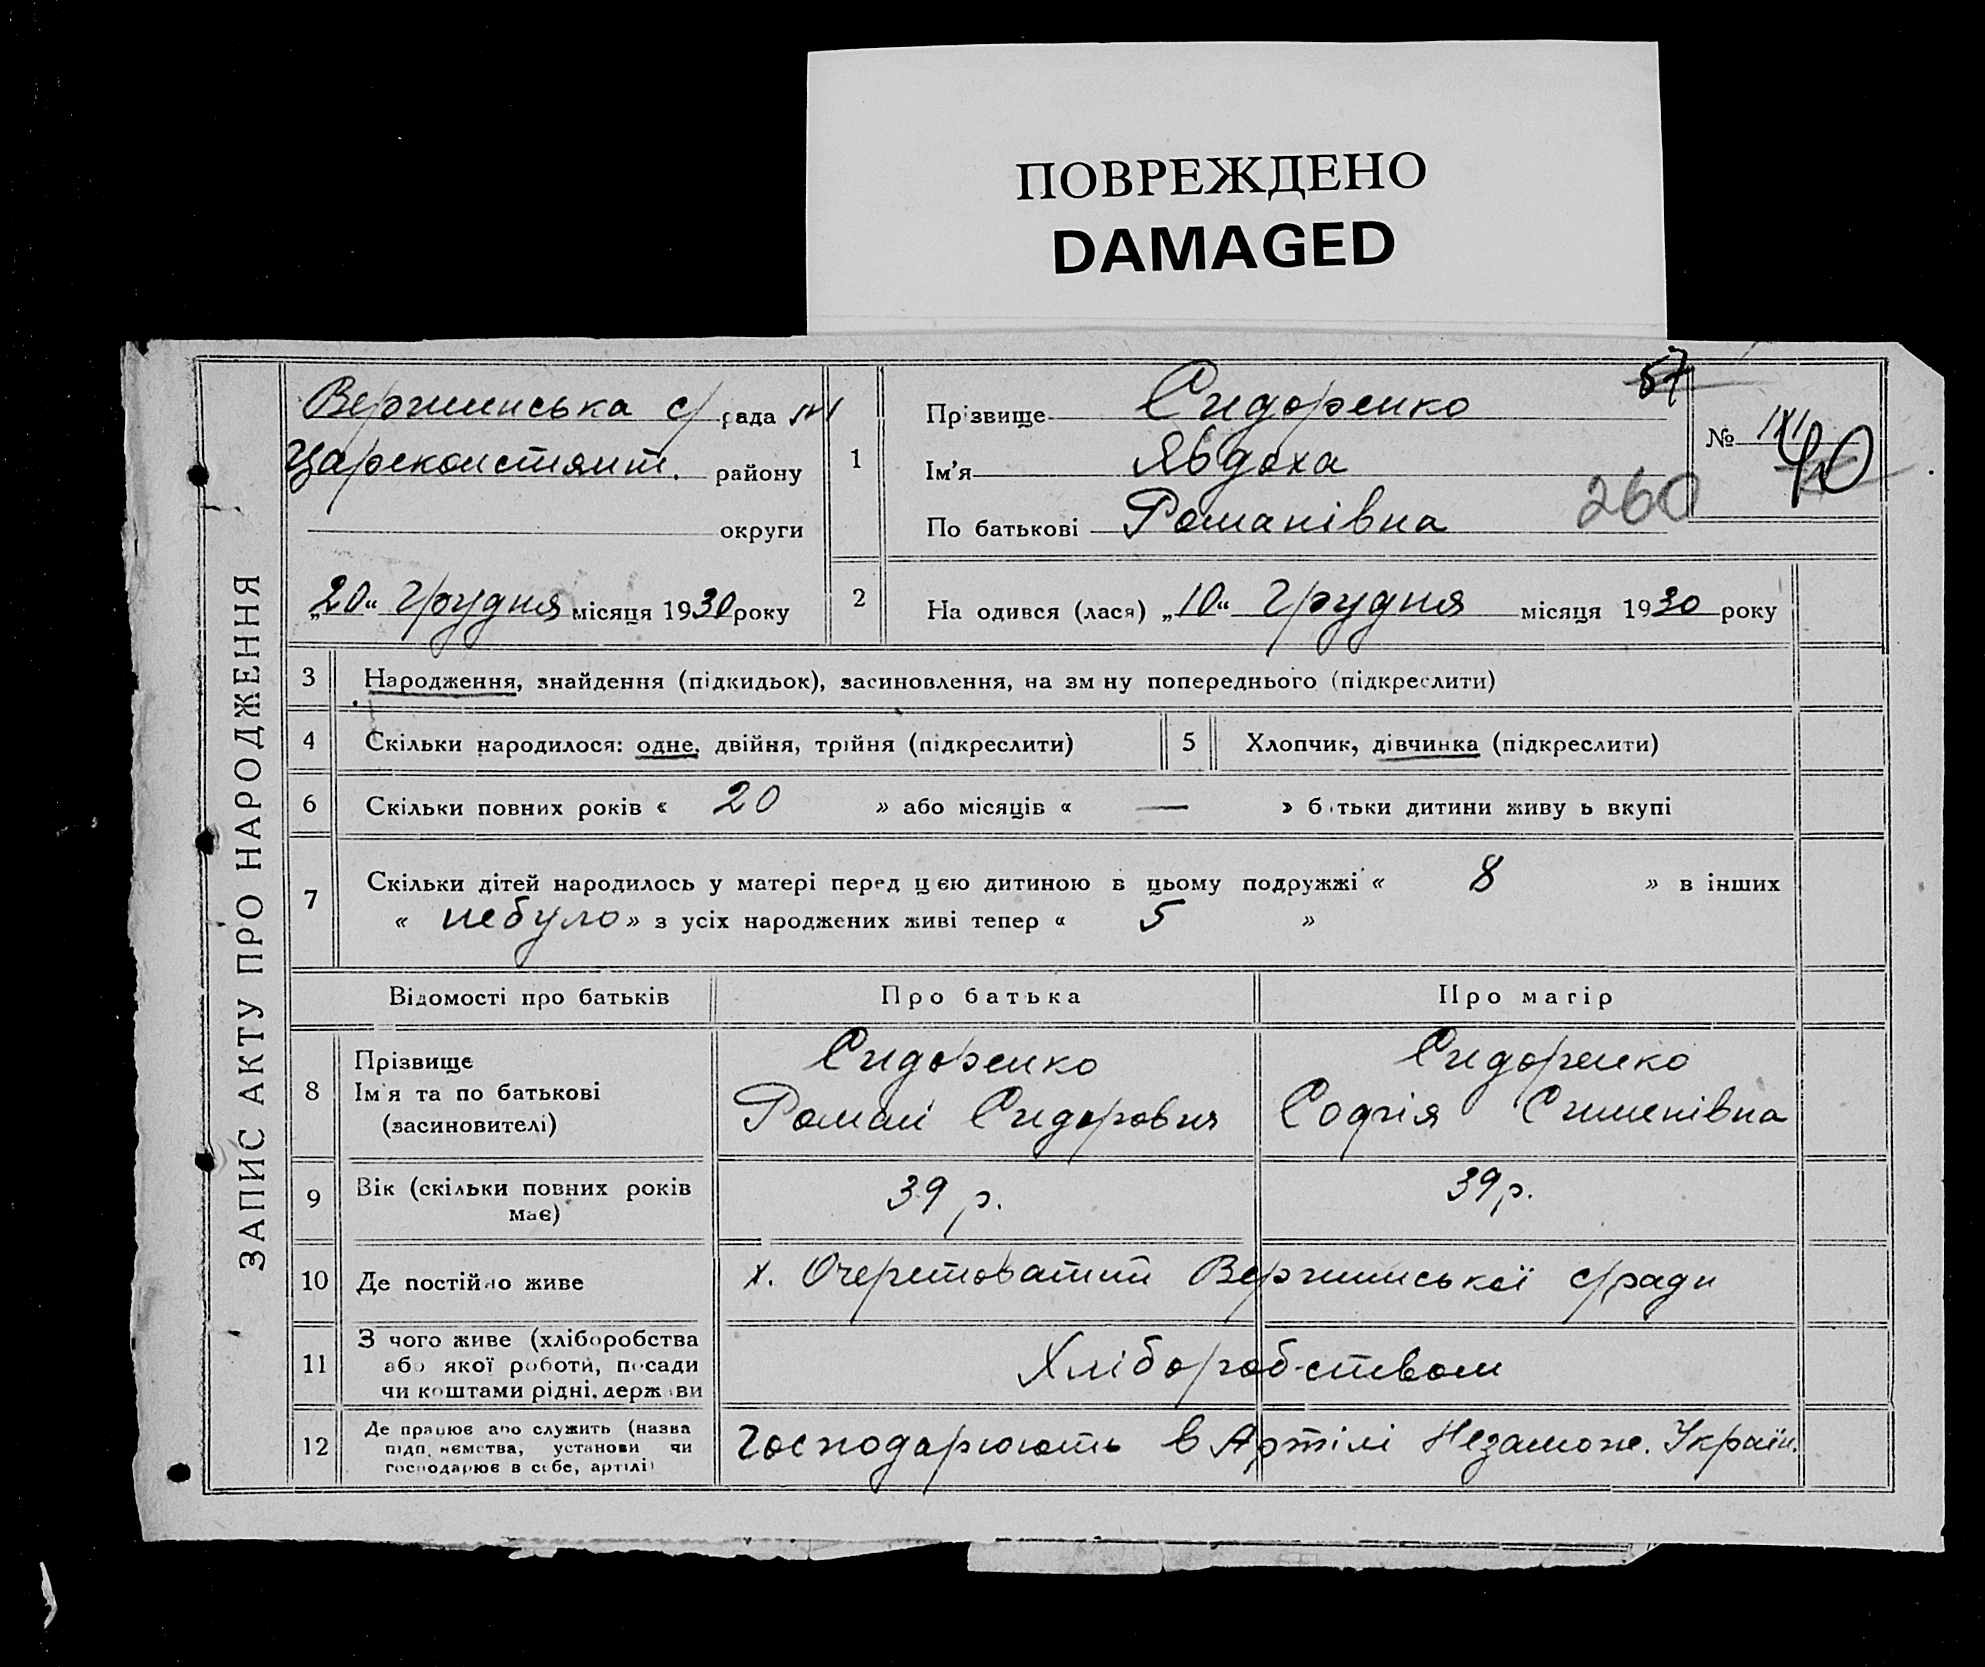 ПОВРЕЖДЕНО
DAMAGED
ЗАПИС АКТУ ПРО НАРОДЖЕННЯ
Вершинська с/рада
Царсконстянт. району
округи
„20“ грудня місяця 1930 року
1
Прізвище Сидоренко
Ім'я Явдоха
По батькові Романівна
57
№
40
260
2 На одився (лася) „10“ грудня місяця 1930 року
3 Народження, знайдення (підкидьок), засиновлення, на зм ну попереднього (підкреслити)
4 Скільки народилося: одне, двійня, трійня (підкреслити) 5 Хлопчик, дівчинка (підкреслити)
6 Скільки повних років « 20 » або місяців « — » б тьки дитини живу ь вкупі
7 Скільки дітей народилось у матері перед цією дитиною в цьому подружжі « 8 » в інших
« небуло » з усіх народжених живі тепер « 5 »
Відомості про батьків Про батька Про матір
8 Прізвище Сидоренко Сидоренко
Ім'я та по батькові Роман Сидорович Софія Сименівна
(засиновителі)
9 Вік (скільки повних років має) 39 р. 39 р.
10 Де постійно живе х. Очеретоватий Вершинської с/ради
11 З чого живе (хліборобства або якої роботи, посади чи коштами рідні, держави Хліборобством
12 Де працює або служить (назва підп. ємства, установи чи господарює в себе, артілі) Господарюють в Артілі Незамож. Україн.